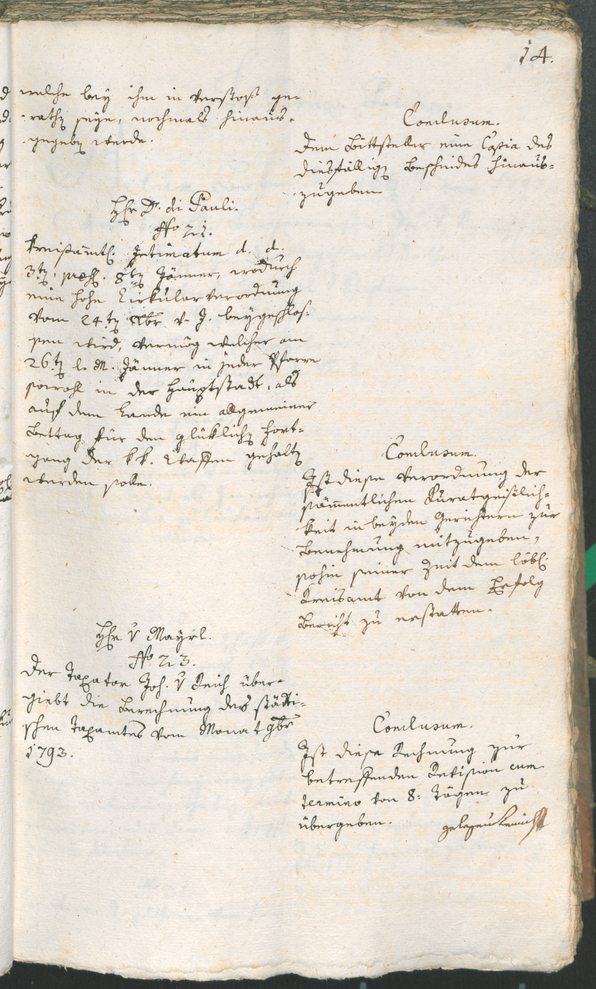 14.
welche bey ihm in Verstoß ge-
rathen seyn, nochmals hinaus-
gegeben werde.
Conclusum.
Dem Bittsteller eine Copia des
diesfälligen Bescheides hinaus-
zugeben
Hr. Dr. di Pauli.
No 22.
Kreisamtl. Intimatum d. d.
3ten, 8ten Jänner, wodurch
eine hohe Zirkularverordnung
vom 24ten v. J. beygeschlos-
sen wird, vermög welcher am
26ten l. M. Jänner in jeder Pfarre
sowohl in der Hauptstadt, als
auf dem Lande ein allgemeiner
Bettag für den glücklichen Fort-
gang der kk. Waffen gehalten
werden solle.
Conclusum.
Ist diese Verordnung der
sämmentlichen Kuratgeistlich-
keit in beyden Gerichtern zur
Benehmung mitzugeben,
sohin seiner Zeit dem löbl.
Kreisamt von dem Erfolg
Bericht zu erstatten.
Hr. v Mayrl.
No 23.
Der Taxator Joh. v Reich über-
giebt die Berechnung des stätti-
schen Taxamtes vom Monat 9ber
1793.
Conclusum.
Ist diese Rechnung zur
betreffenden Revision cum
termino von 8: Tägen zu
übergeben.